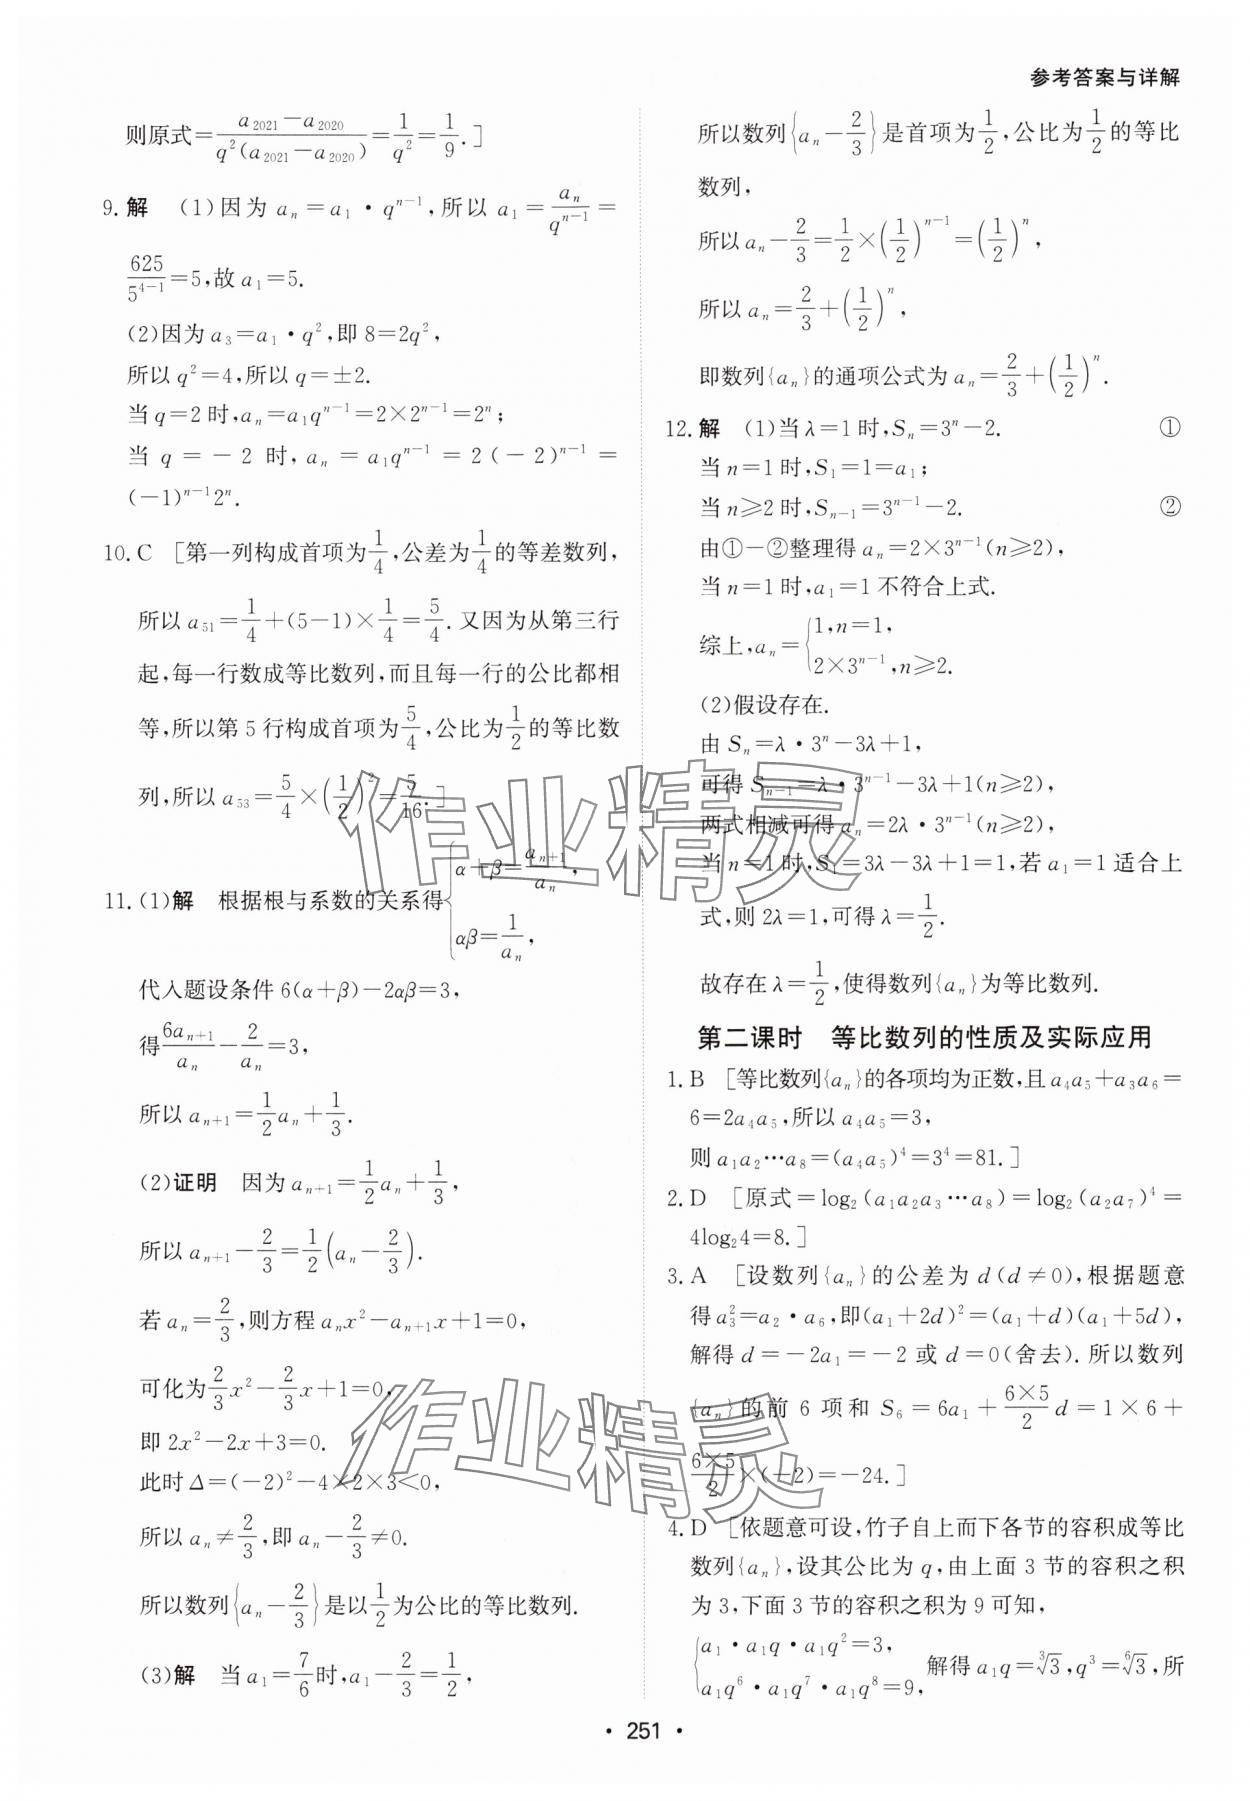 参考答案与详解
则原式=\frac{a_{2021}-a_{2020}}{q^2(a_{2021}-a_{2020})}=\frac{1}{q^2}=\frac{1}{9}.]
9.解 (1)因为 a_n=a_1·q^{n-1},所以 a_1=\frac{a_n}{q^{n-1}}=
\frac{625}{5^{4-1}}=5,故 a_1=5.
(2)因为 a_3=a_1·q^2,即 8=2q^2,
所以 q^2=4,所以 q=±2.
当 q=2 时,a_n=a_1q^{n-1}=2×2^{n-1}=2^n;
当 q=-2 时,a_n=a_1q^{n-1}=2(-2)^{n-1}=
(-1)^{n-1}2^n.
10.C [第一列构成首项为\frac{1}{4},公差为\frac{1}{4}的等差数列,
所以 a_{51}=\frac{1}{4}+(5-1)×\frac{1}{4}=\frac{5}{4}.又因为从第三行
起,每一行数成等比数列,而且每一行的公比都相
等,所以第 5 行构成首项为\frac{5}{4},公比为\frac{1}{2}的等比数
列,所以 a_{53}=\frac{5}{4}×(\frac{1}{2})^2=\frac{5}{16}.]
11.(1)解 根据根与系数的关系得{α+β=\frac{a_{n+1}}{a_n},
αβ=\frac{1}{a_n},
代入题设条件 6(α+β)-2αβ=3,
得\frac{6a_{n+1}}{a_n}-\frac{2}{a_n}=3,
所以 a_{n+1}=\frac{1}{2}a_n+\frac{1}{3}.
(2)证明 因为 a_{n+1}=\frac{1}{2}a_n+\frac{1}{3},
所以 a_{n+1}-\frac{2}{3}=\frac{1}{2}(a_n-\frac{2}{3}).
若 a_n=\frac{2}{3},则方程 a_nx^2-a_{n+1}x+1=0,
可化为\frac{2}{3}x^2-\frac{2}{3}x+1=0,
即 2x^2-2x+3=0.
此时 Δ=(-2)^2-4×2×3<0,
所以 a_n≠\frac{2}{3},即 a_n-\frac{2}{3}≠0.
所以数列{a_n-\frac{2}{3}}是以\frac{1}{2}为公比的等比数列.
(3)解 当 a_1=\frac{7}{6}时,a_1-\frac{2}{3}=\frac{1}{2},
所以数列{a_n-\frac{2}{3}}是首项为\frac{1}{2},公比为\frac{1}{2}的等比
数列,
所以 a_n-\frac{2}{3}=\frac{1}{2}×(\frac{1}{2})^{n-1}=(\frac{1}{2})^n,
所以 a_n=\frac{2}{3}+(\frac{1}{2})^n,
即数列{a_n}的通项公式为 a_n=\frac{2}{3}+(\frac{1}{2})^n.
12.解 (1)当 λ=1 时,S_n=3^n-2. ①
当 n=1 时,S_1=1=a_1;
当 n≥2 时,S_{n-1}=3^{n-1}-2. ②
由①-②整理得 a_n=2×3^{n-1}(n≥2),
当 n=1 时,a_1=1 不符合上式.
综上,a_n={1,n=1,
2×3^{n-1},n≥2.
(2)假设存在.
由 S_n=λ·3^n-3λ+1,
可得 S_{n-1}=λ·3^{n-1}-3λ+1(n≥2),
两式相减可得 a_n=2λ·3^{n-1}(n≥2),
当 n=1 时,S_1=3λ-3λ+1=1,若 a_1=1 适合上
式,则 2λ=1,可得 λ=\frac{1}{2}.
故存在 λ=\frac{1}{2},使得数列{a_n}为等比数列.
第二课时 等比数列的性质及实际应用
1.B [等比数列{a_n}的各项均为正数,且 a_4a_5+a_3a_6=
6=2a_4a_5,所以 a_4a_5=3,
则 a_1a_2…a_8=(a_4a_5)^4=3^4=81.]
2.D [原式=log_2(a_1a_2a_3…a_8)=log_2(a_2a_7)^4=
4log_24=8.]
3.A [设数列{a_n}的公差为 d(d≠0),根据题意
得 a_3^2=a_2·a_6,即(a_1+2d)^2=(a_1+d)(a_1+5d),
解得 d=-2a_1=-2 或 d=0(舍去).所以数列
{a_n}的前 6 项和 S_6=6a_1+\frac{6×5}{2}d=1×6+
\frac{6×5}{2}×(-2)=-24.]
4.D [依题意可设,竹子自上而下各节的容积成等比
数列{a_n},设其公比为 q,由上面 3 节的容积之积
为 3,下面 3 节的容积之积为 9 可知,
{a_1·a_1q·a_1q^2=3,
a_1q^6·a_1q^7·a_1q^8=9,
解得 a_1q=\sqrt[3]{3},q^3=\sqrt[6]{3},所
·251·
作业精灵
作业精灵